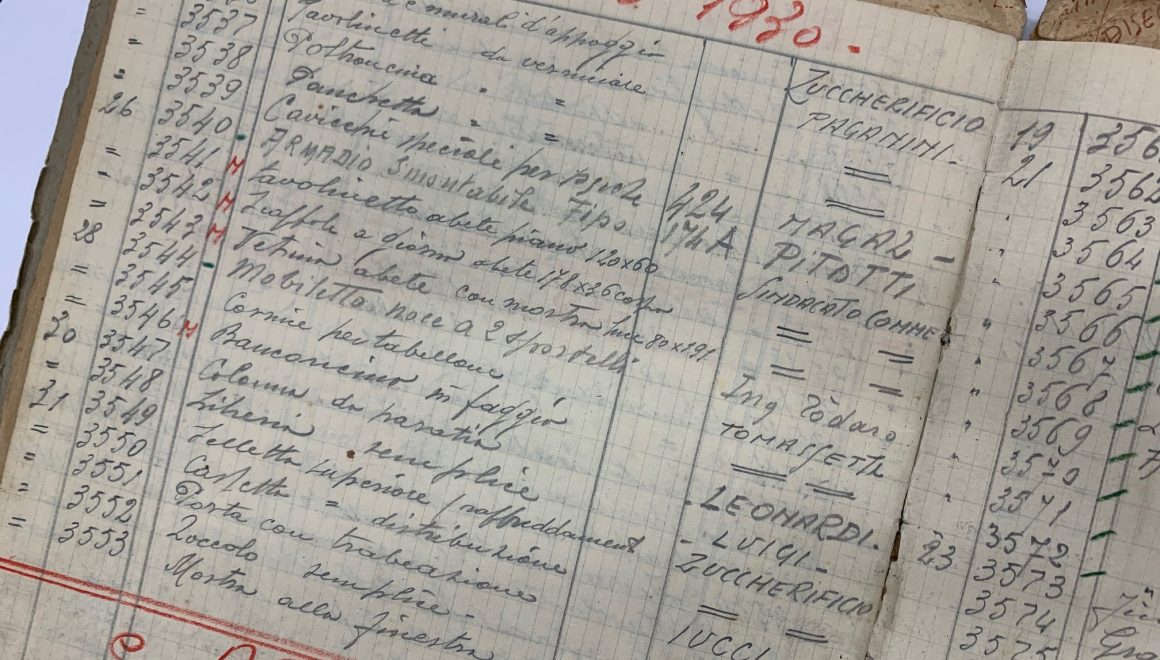 1930.
e murali d'appoggio
= 3537 Tavolinetti da verniciare ZUCCHERIFICIO
= 3538 Poltroncina " = PAGANINI -
= 3539 Panchetta " = =
26 3540 Cavicchi speciali per psiche =
= 3541 ARMADIO Smontabile Tipo 424 MAGAZ -
= 3542 M Tavolinetto abete piano 120x60 174A PITOTTI
= 3543 M a giorno abete 178x36 SINDACATO COMME
28 3544 M Vetrina abete con mostra luce 80x191 = =
= 3545 Mobiletto noce a 2 sportelli = =
= 3546 Cornice per tabellone Ing Todaro
30 3547 M Banconcino in faggio TOMASSETTI
= 3548 Colonna da parati = =
31 3549 Libreria semplice - LEONARDI -
= 3550 superiore - LUIGI -
= 3551 = distribuzione ZUCCHERIFICIO
= 3552 Porta con trabeazione = =
= 3553 Zoccolo semplice - IUCCI
Mostra alla finestra
19 356
21 3562
" 3563
" 3564
3565
" 3566
" 3567
3568
" 3569
" 3570
" 3571
3572
23 3573
3574
3575